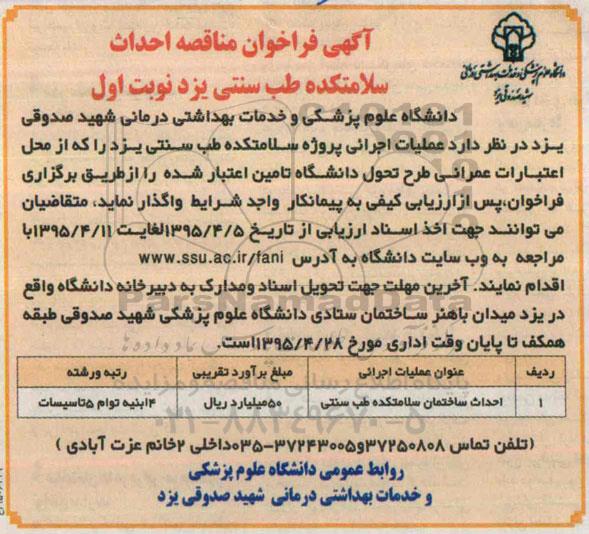 آگهی فراخوان مناقصه احداث
سلامتکده طب سنتی یزد نوبت اول
دانشگاه علوم پزشکی و خدمات بهداشتی درمانی
شهید صدوقی یزد
دانشگاه علوم پزشکی و خدمات بهداشتی درمانی شهید صدوقی
یزد در نظر دارد عملیات اجرائی پروژه سلامتکده طب سنتی یزد را که از محل
اعتبارات عمرانی طرح تحول دانشگاه تامین اعتبار شده را ازطریق برگزاری
فراخوان،پس ازارزیابی کیفی به پیمانکار واجد شرایط واگذار نماید، متقاضیان
می توانند جهت اخذ اسناد ارزیابی از تاریخ ۱۳۹۵/۴/۵لغایت ۱۳۹۵/۴/۱۱با
مراجعه به وب سایت دانشگاه به آدرس www.ssu.ac.ir/fani
اقدام نمایند. آخرین مهلت جهت تحویل اسناد ومدارک به دبیرخانه دانشگاه واقع
در یزد میدان باهنر ساختمان ستادی دانشگاه علوم پزشکی شهید صدوقی طبقه
همکف تا پایان وقت اداری مورخ ۱۳۹۵/۴/۲۸است.
ردیف عنوان عملیات اجرائی مبلغ برآورد تقریبی رتبه ورشته
۱ احداث ساختمان سلامتکده طب سنتی ۵۰میلیارد ریال ۴ابنیه توام ۵تاسیسات
(تلفن تماس ۳۷۲۵۰۸۰۸و۳۷۲۴۳۰۰۵-۰۳۵داخلی ۲خانم عزت آبادی )
روابط عمومی دانشگاه علوم پزشکی
و خدمات بهداشتی درمانی شهید صدوقی یزد
ParsNamadData
پایگاه اطلاع رسانی مناقصه و مزایده
۰۲۱-۸۸۳۴۹۶۷۰-۵